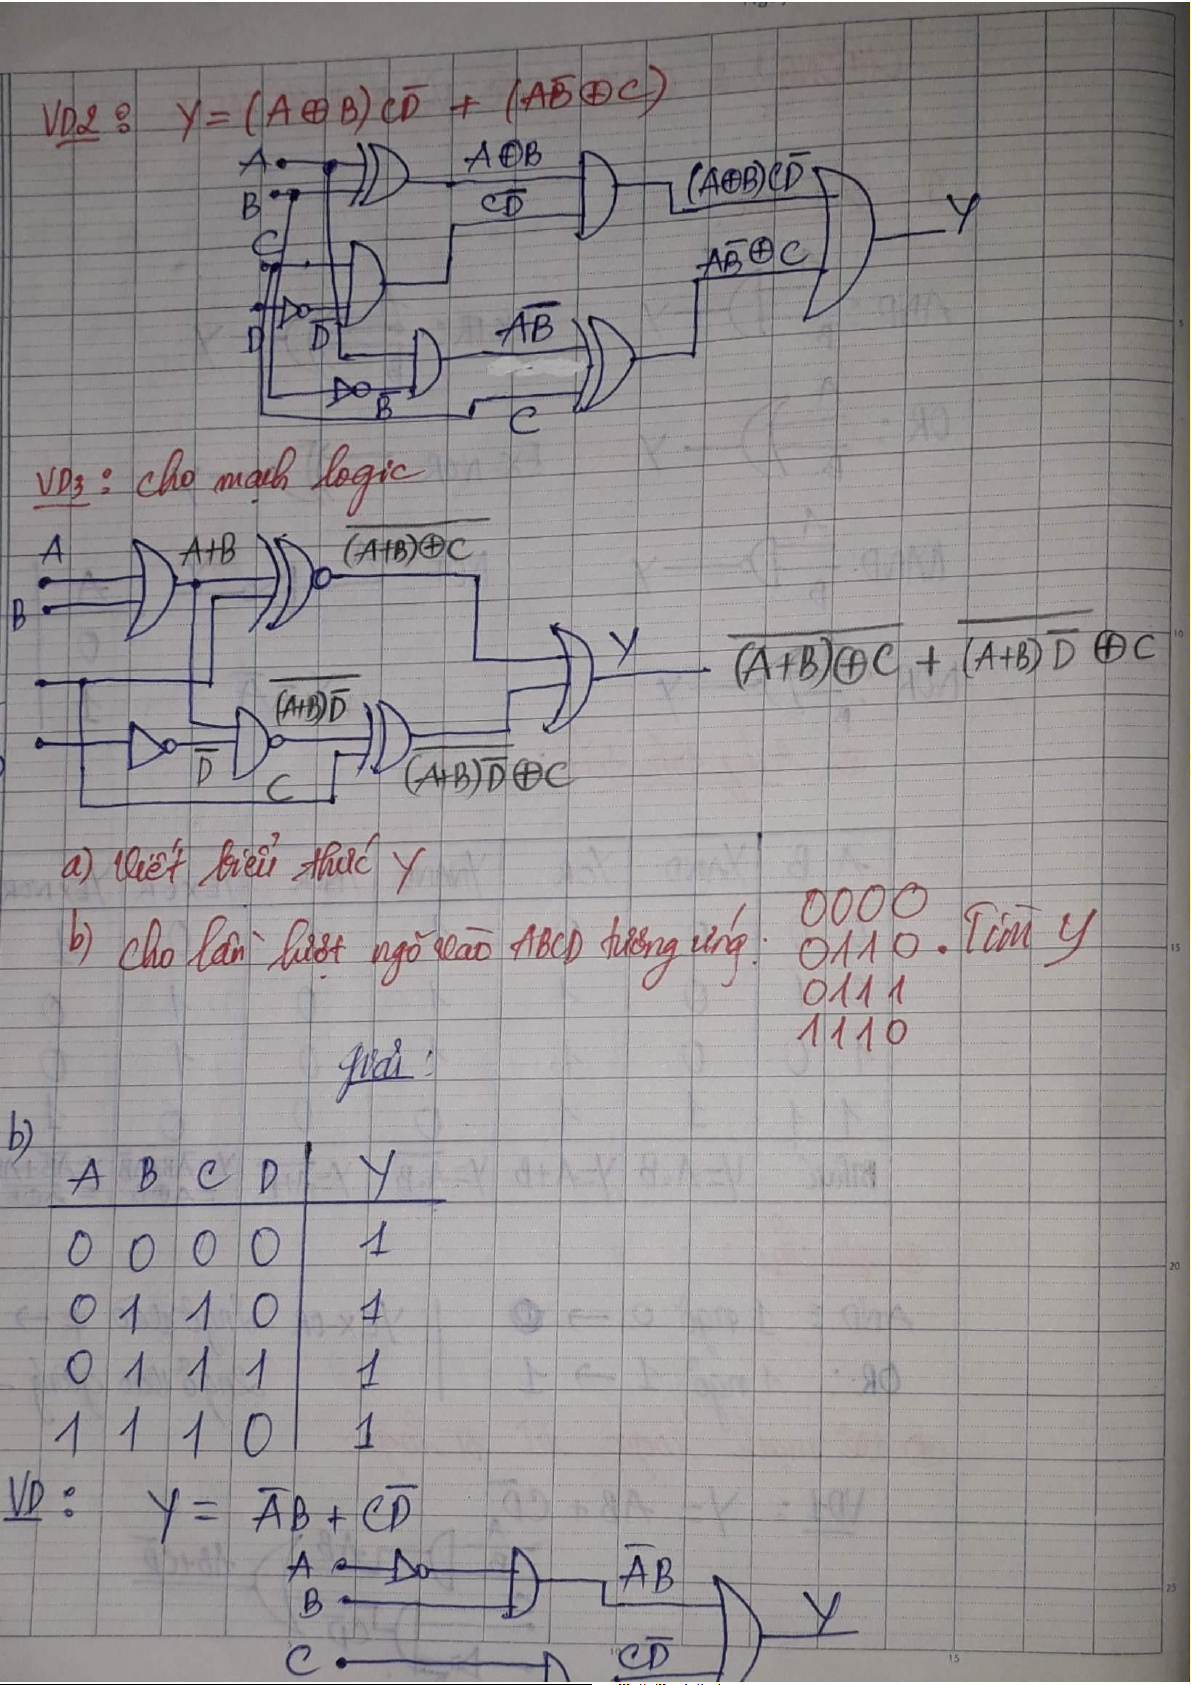 VD2: Y = (A⊕B)CD̅ + (AB̅⊕C)
A
A⊕B
B
CD̅
(A⊕B)CD̅
Y
C
AB̅⊕C
D
D̅
AB̅
B̅
C
VD3: cho mạch logic
A
A+B
\overline{(A+B)⊕C}
B
Y
\overline{(A+B)⊕C} + \overline{(A+B)D̅}⊕C
\overline{(A+B)D̅}
D̅
C
\overline{(A+B)D̅}⊕C
a) Viết biểu thức Y
b) cho lần lượt ngõ vào ABCD tương ứng: 0000
0110. Tìm Y
0111
1110
giải:
b)
A B C D Y
0 0 0 0 1
0 1 1 0 1
0 1 1 1 1
1 1 1 0 1
VD: Y = A̅B + CD̅
A
A̅B
B
Y
C
CD̅
5
10
15
20
25
15